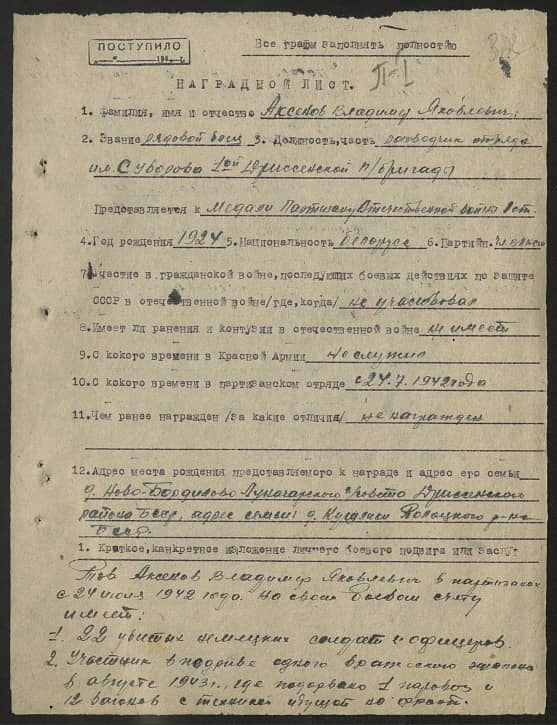 ПОСТУПИЛО
194 г.
Все графы заполнять полностью
НАГРАДНОЙ ЛИСТ.
1. Фамилия, имя и отчество Аксенов Владимир Яковлевич
2. Звание рядовой боец 3. Должность, часть разведчик отряда
им. Суворова 1ой Дриссенской п/бригады
Представляется к Медали Партизану Отечественной войны I ст.
4. Год рождения 1924 5. Национальность Белорусс 6. Партийн. чл. ВЛКСМ
7. Участие в гражданской войне, последующих боевых действиях по защите
СССР в отечественной войне /где, когда/ не участвовал
8. Имеет ли ранения и контузии в отечественной войне не имеет
9. С кокого времени в Красной Армии не служил
10. С кокого времени в партизанском отряде с 24.7.1942 года
11. Чем ранее награжден /за какие отличия/ не награжден
12. Адрес места рождения представляемого к награде и адрес его семьи
д. Ново-Бордилово с/совета Дриссенского
района БССР, адрес семьи: д. Полоцкого р-на
БССР.
1. Краткое, канкретное изложение личного боевого подвига или заслуг
Тов Аксенов Владимир Яковлевич в партизанах
с 24 июля 1942 года. На своем боевом счету
имеет:
1. 22 убитых немецких солдат и офицеров.
2. Участник в подрыве одного вражеского эшелона
в августе 1943 г., где подорвано 1 паровоз и
12 вагонов с техникой идущей на фронт.